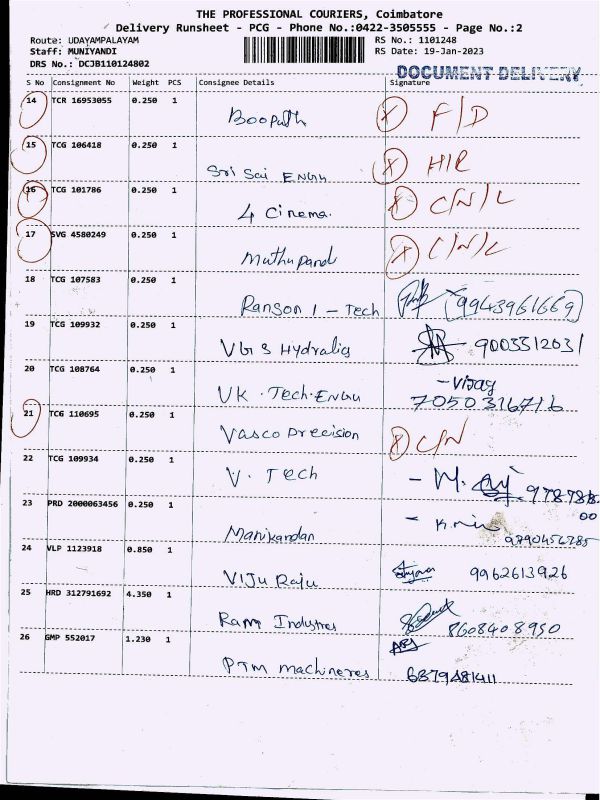 THE PROFESSIONAL COURIERS, Coimbatore
Delivery Runsheet - PCG - Phone No.:0422-3505555 - Page No.:2
Route: UDAYAMPALAYAM RS No.: 1101248
Staff: MUNIYANDI RS Date: 19-Jan-2023
DRS No.: DCJB110124802
DOCUMENT DELIVERY
S No Consignment No Weight PCS Consignee Details Signature
14 TCR 16953055 0.250 1 Boopath X F/D
15 TCG 106418 0.250 1 Sri Sai Engu X H/R
16 TCG 101786 0.250 1 4 Cinema. X C/N/L
17 SVG 4580249 0.250 1 Muthupandi X C/N/L
18 TCG 107583 0.250 1 Ranson I - Tech 9943961669
19 TCG 109932 0.250 1 VG S Hydralics 9003312031
20 TCG 108764 0.250 1 VK . Tech . Engu - Vijay
7050316716
21 TCG 110695 0.250 1 Vasco Precision X C/N
22 TCG 109934 0.250 1 V. Tech - M.
23 PRD 2000063456 0.250 1 Manikandan 9790456785
24 VLP 1123918 0.850 1 Viju Raju 9962613926
25 HRD 312791692 4.350 1 Ram Industres 8608408950
26 GMP 552017 1.230 1 PTM machineres 6379481411